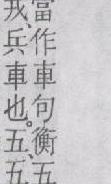 當作車句衡五
戎、兵車也。五、五